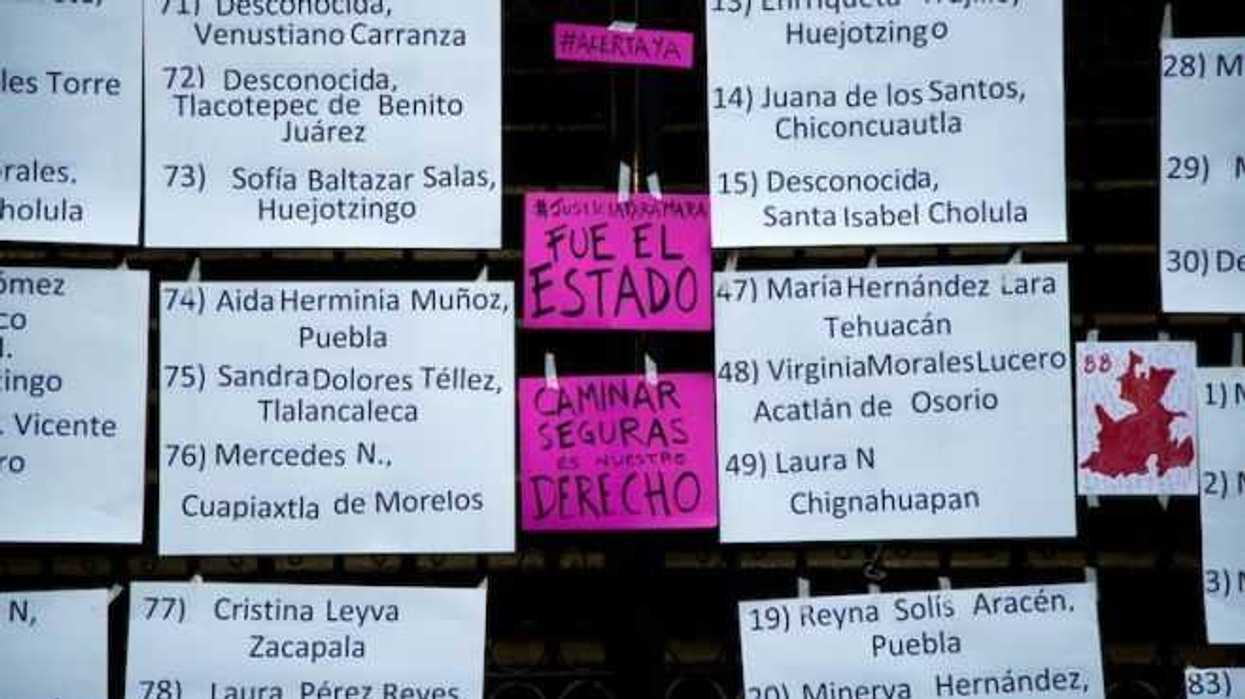 les Torre
rales,
holula
ómez
co
ingo
. Vicente
ro
N,
71) Desconocida,
Venustiano Carranza
72) Desconocida,
Tlacotepec de Benito
Juárez
73) Sofía Baltazar Salas,
Huejotzingo
74) Aida Herminia Muñoz,
Puebla
75) Sandra Dolores Téllez,
Tlalancaleca
76) Mercedes N.,
Cuapiaxtla de Morelos
77) Cristina Leyva
Zacapala
78) Laura Pérez Reyes
#ALERTAYA
FUE EL
ESTADO
CAMINAR
SEGURAS
ES NUESTRO
DERECHO
13) Enriqueta Trujillo,
Huejotzingo
14) Juana de los Santos,
Chiconcuautla
15) Desconocida,
Santa Isabel Cholula
47) María Hernández Lara
Tehuacán
48) Virginia Morales Lucero
Acatlán de Osorio
49) Laura N
Chignahuapan
19) Reyna Solís Aracén.
Puebla
20) Minerva Hernández,
88
28) M
29)
30) De
1)
2)
3)
83)